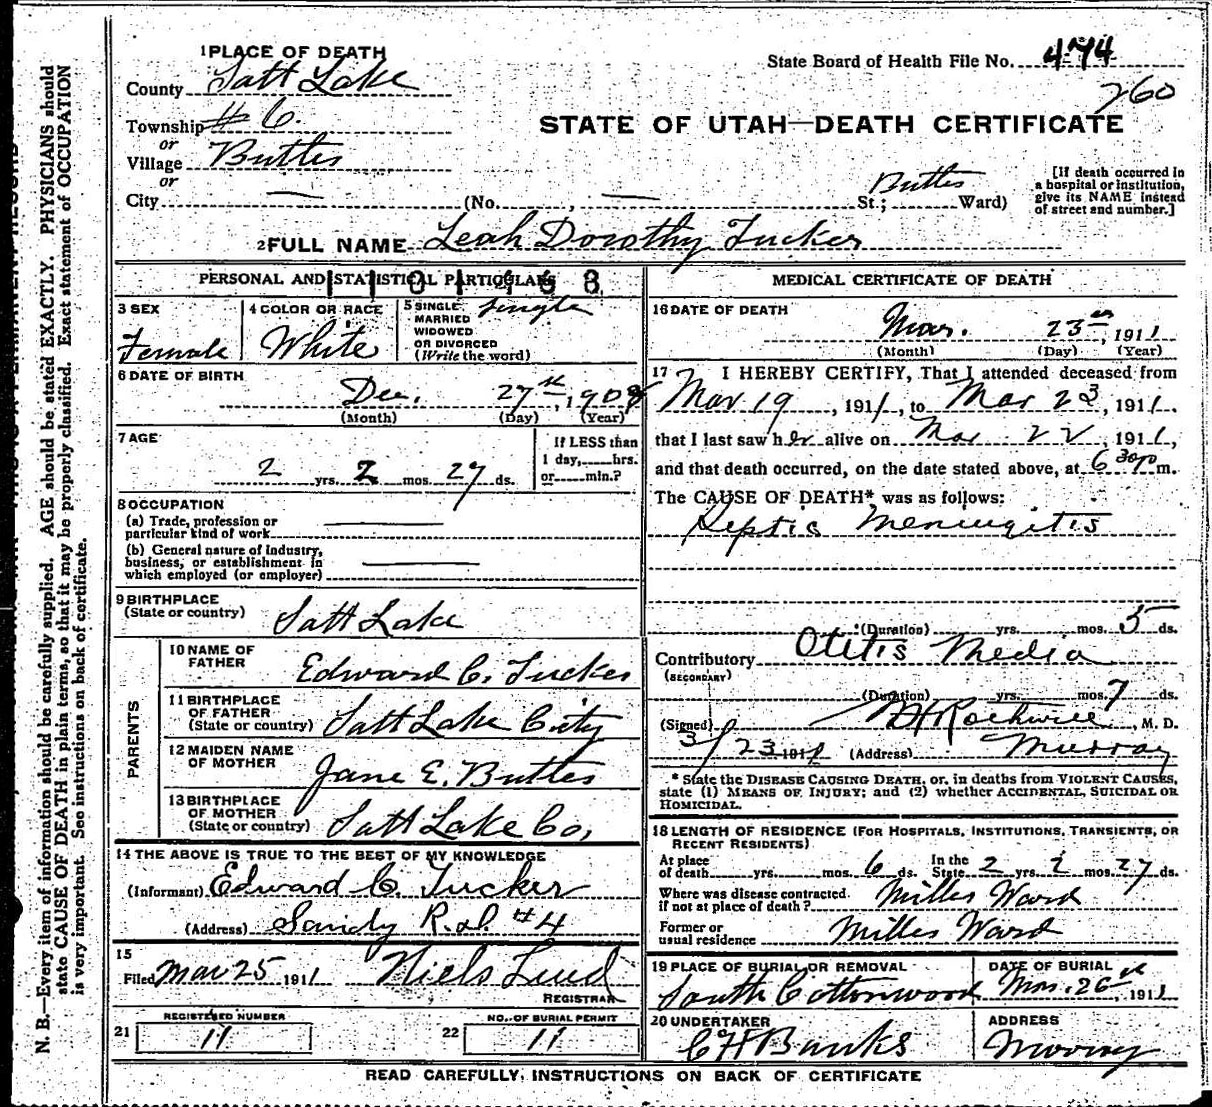 1 PLACE OF DEATH
State Board of Health File No. 474
County Salt Lake
260
Township #6.
or
STATE OF UTAH—DEATH CERTIFICATE
Village Butler
or
City — (No. , — St.; Butler Ward)
[If death occurred in
a hospital or institution,
give its NAME instead
of street and number.]
2 FULL NAME Leah Dorothy Tucker
PERSONAL AND STATISTICAL PARTICULARS
3 SEX
Female
4 COLOR OR RACE
White
5 SINGLE,
MARRIED
WIDOWED
OR DIVORCED
(Write the word)
Single
6 DATE OF BIRTH
Dec. 27th, 1908
(Month) (Day) (Year)
7 AGE
2 yrs. 2 mos. 27 ds.
If LESS than
1 day, hrs.
or min.?
8 OCCUPATION
(a) Trade, profession or
particular kind of work —
(b) General nature of industry,
business, or establishment in
which employed (or employer) —
9 BIRTHPLACE
(State or country) Salt Lake
PARENTS
10 NAME OF
FATHER Edward C. Tucker
11 BIRTHPLACE
OF FATHER
(State or country) Salt Lake City
12 MAIDEN NAME
OF MOTHER Jane E. Butler
13 BIRTHPLACE
OF MOTHER
(State or country) Salt Lake Co,
14 THE ABOVE IS TRUE TO THE BEST OF MY KNOWLEDGE
(Informant) Edward C. Tucker
(Address) Sandy R.d. #4
15
Filed Mar 25 1911 Niels Lind
REGISTRAR
REGISTERED NUMBER
21 11
NO. OF BURIAL PERMIT
22 11
MEDICAL CERTIFICATE OF DEATH
16 DATE OF DEATH
Mar. 23rd, 1911
(Month) (Day) (Year)
17 I HEREBY CERTIFY, That I attended deceased from
Mar 19, 1911, to Mar 23, 1911.
that I last saw her alive on Mar 22, 1911,
and that death occurred, on the date stated above, at 6 30 P m.
The CAUSE OF DEATH* was as follows:
Septic Meningitis
(Duration) yrs. mos. 5 ds.
Contributory Otitis Media
(SECONDARY)
(Duration) yrs. mos. 7 ds.
(Signed) Rockwell, M. D.
3/23 1911 (Address) Murray
* State the DISEASE CAUSING DEATH, or, in deaths from VIOLENT CAUSES,
state (1) MEANS OF INJURY; and (2) whether ACCIDENTAL, SUICIDAL OR
HOMICIDAL.
18 LENGTH OF RESIDENCE (FOR HOSPITALS, INSTITUTIONS, TRANSIENTS, OR
RECENT RESIDENTS)
At place
of death yrs. mos. 6 ds. In the
State 2 yrs. 2 mos. 27 ds.
Where was disease contracted,
if not at place of death? Miller Ward
Former or
usual residence Miller Ward
19 PLACE OF BURIAL OR REMOVAL
South Cottonwood
DATE OF BURIAL
Mar. 26th, 1911
20 UNDERTAKER
C H Banks
ADDRESS
Murray
READ CAREFULLY, INSTRUCTIONS ON BACK OF CERTIFICATE
N. B.—Every item of information should be carefully supplied. AGE should be stated EXACTLY. PHYSICIANS should
state CAUSE OF DEATH in plain terms, so that it may be properly classified. Exact statement of OCCUPATION
is very important. See instructions on back of certificate.